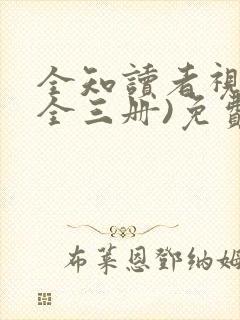 全知讀者視
全三册)免費
布萊恩鄧納姆